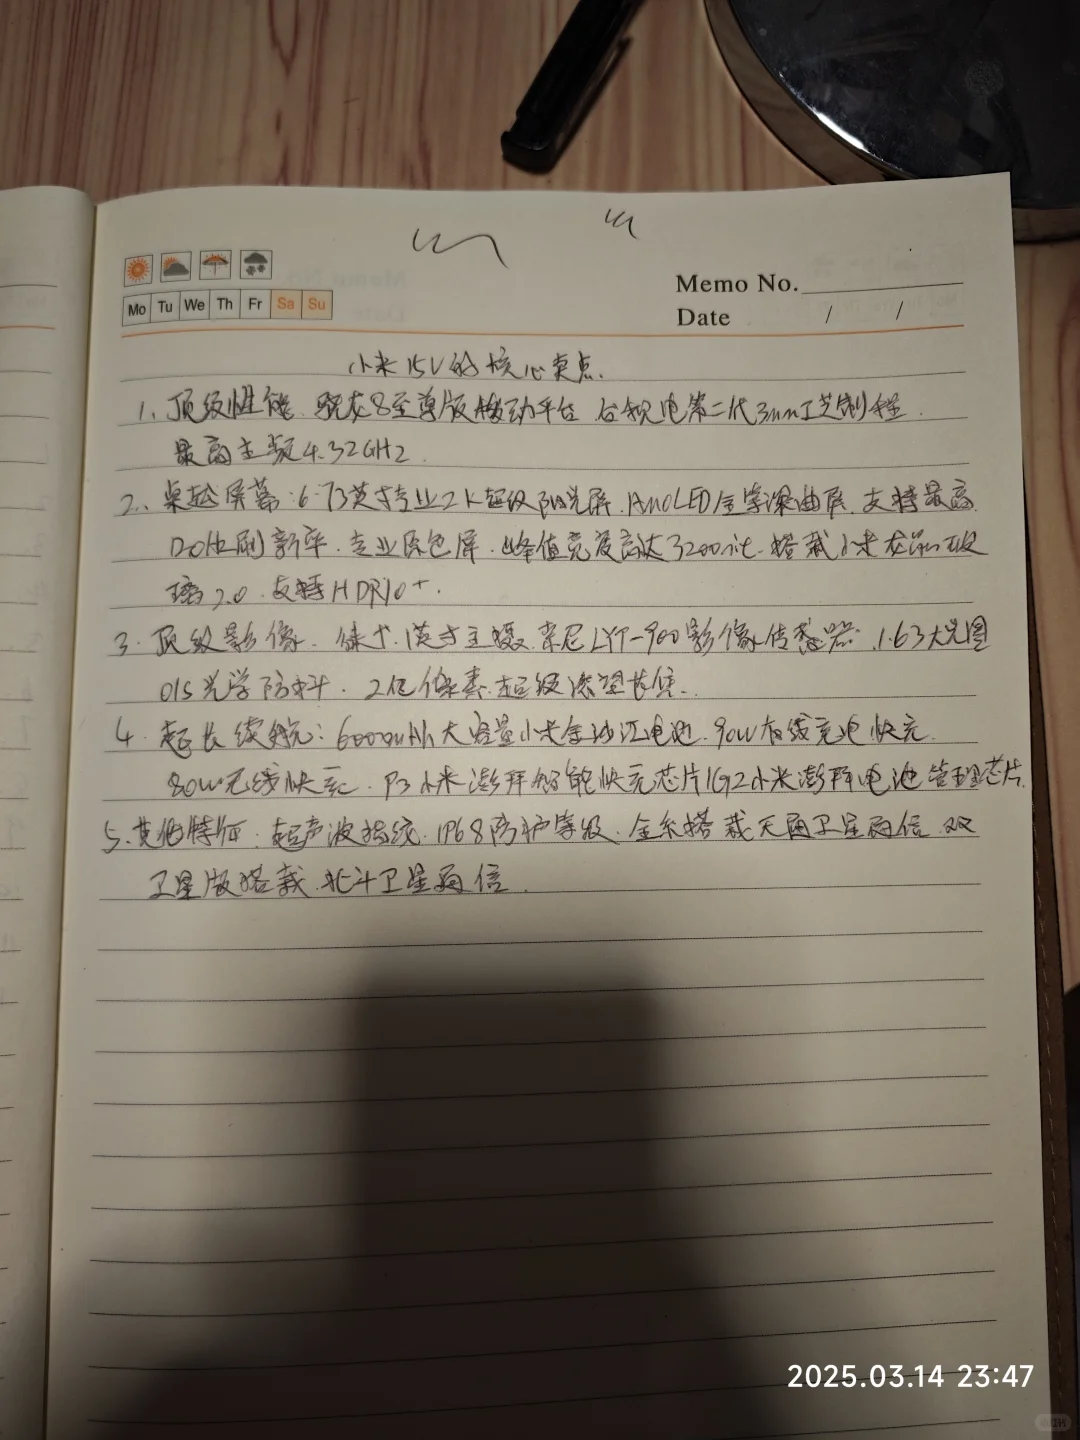 Mo Tu We Th Fr Sa Su
Memo No.
Date / /
小米15U的核心卖点.
1、顶级性能. 骁龙8至尊版移动平台 台积电第二代3nm工艺制程.
最高主频4.32GHz.
2、卓越屏幕:6.73英寸专业2K超级阳光屏. AmoLED全等深曲屏. 支持最高
120Hz刷新率. 专业原色屏. 峰值亮度高达3200nit. 搭载小米龙晶玻
璃2.0. 支持HDR10+.
3. 顶级影像. 徕卡. 1英寸主摄. 索尼LYT-900影像传感器. 1.63大光圈
OIS光学防抖. 2亿像素. 超级潜望长焦.
4. 超长续航:6000mAh大容量小米金沙江电池. 90W有线充电快充.
80W无线快充. P3小米澎湃智能快充芯片1G2小米澎湃电池管理芯片.
5. 其他特征. 超声波指纹. IP68防护等级. 全系搭载天通卫星通信. 双
卫星版搭载 北斗卫星通信.
2025.03.14 23:47